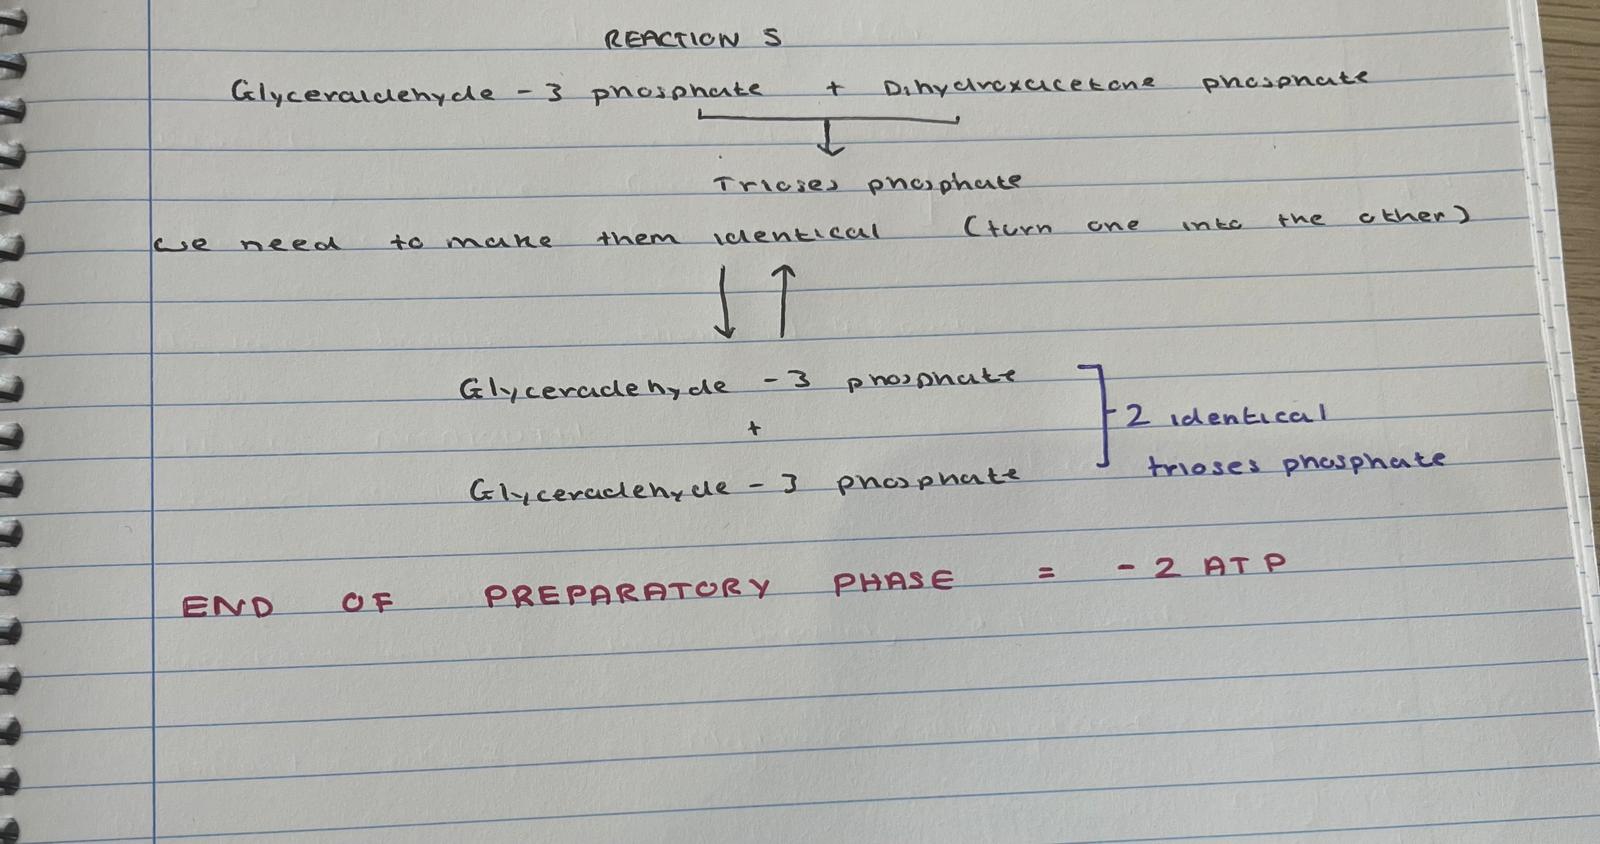 REACTION 5
Glyceraldehyde - 3 phosphate + Dihydroxacetone phosphate
Trioses phosphate
we need to make them identical (turn one into the other)
Glyceradehyde - 3 phosphate
+
Glyceradehyde - 3 phosphate
2 identical
trioses phosphate
END OF PREPARATORY PHASE = - 2 ATP